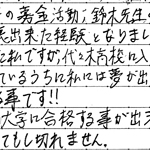 の募金活動、鈴木先生の
出来た経験となりまし
に私ですが、代々木高校に入
ているうちに私には夢が出
る事です!!
大学に合格する事が出
てもし切れません。